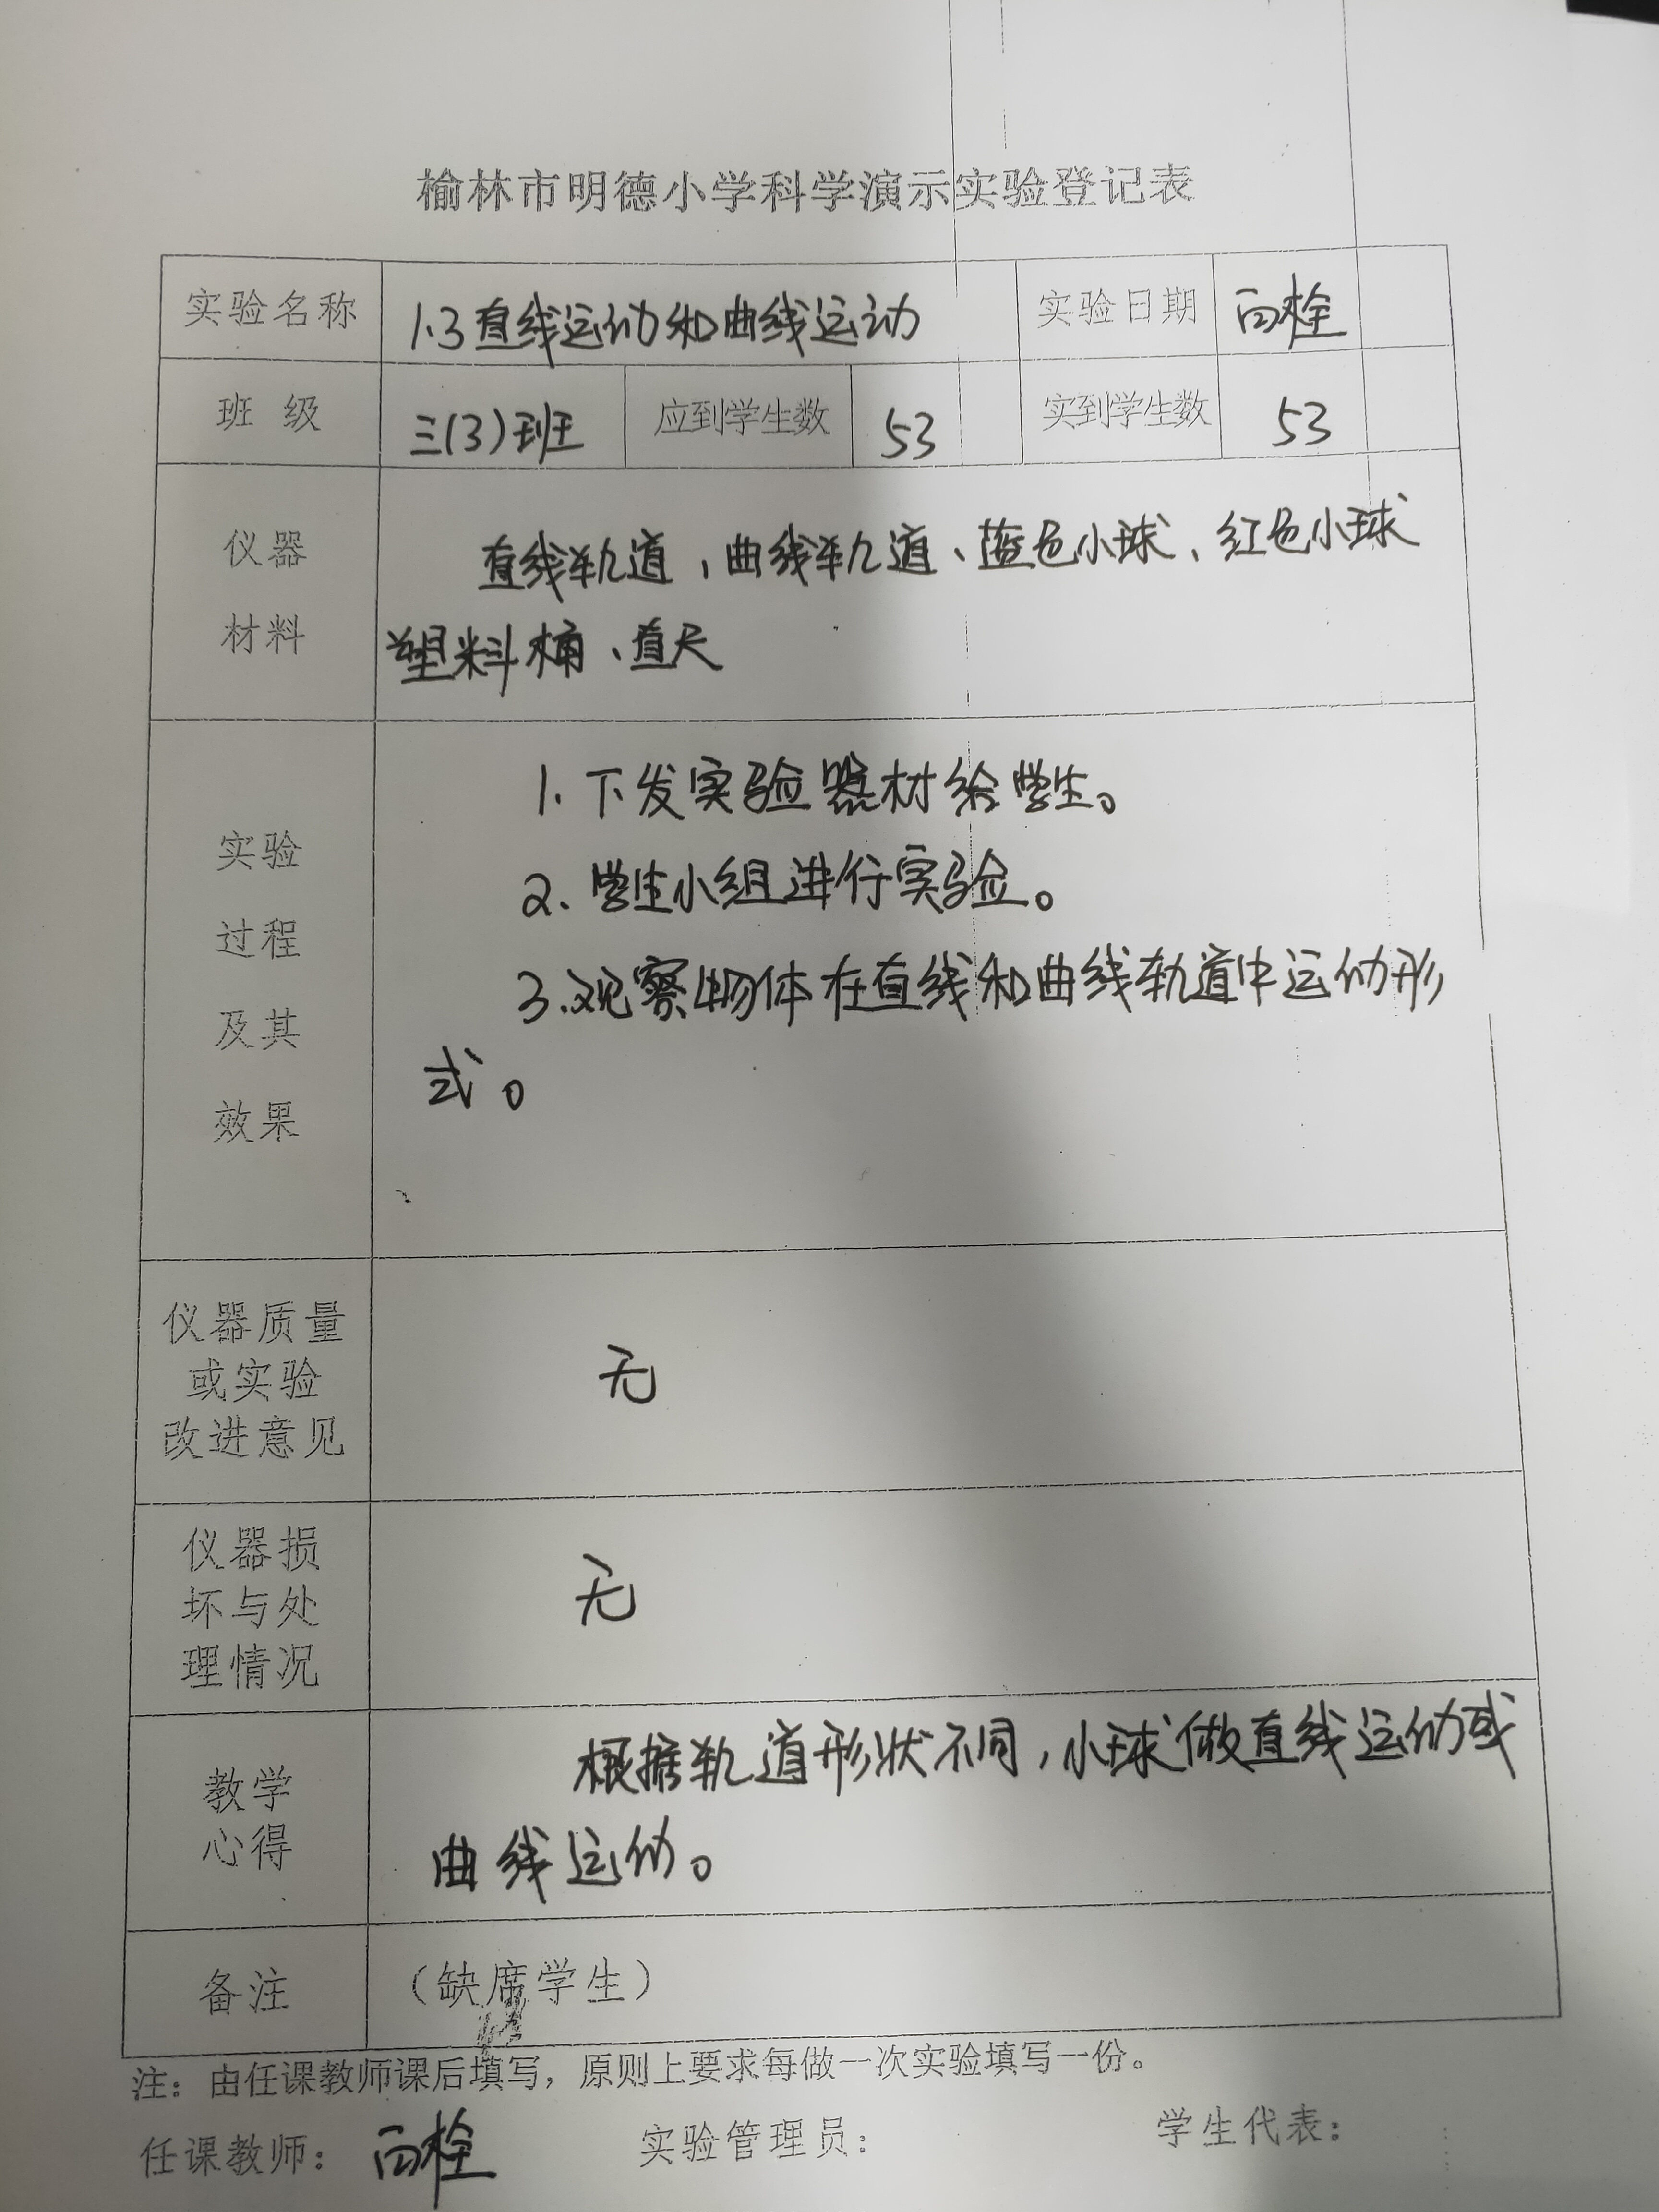 榆林市明德小学科学演示实验登记表
实验名称 1.3直线运动和曲线运动 实验日期
班 级 三(3)班 应到学生数 53 实到学生数 53
仪器
材料
直线轨道，曲线轨道、蓝色小球、红色小球
塑料桶、直尺
实验
过程
及其
效果
1. 下发实验器材给学生。
2、学生小组进行实验。
3.观察物体在直线和曲线轨道中运动形
式。
仪器质量
或实验
改进意见
无
仪器损
坏与处
理情况
无
教学
心得
根据轨道形状不同，小球做直线运动或
曲线运动。
备注 （缺席学生）
注：由任课教师课后填写，原则上要求每做一次实验填写一份。
任课教师： 实验管理员： 学生代表：